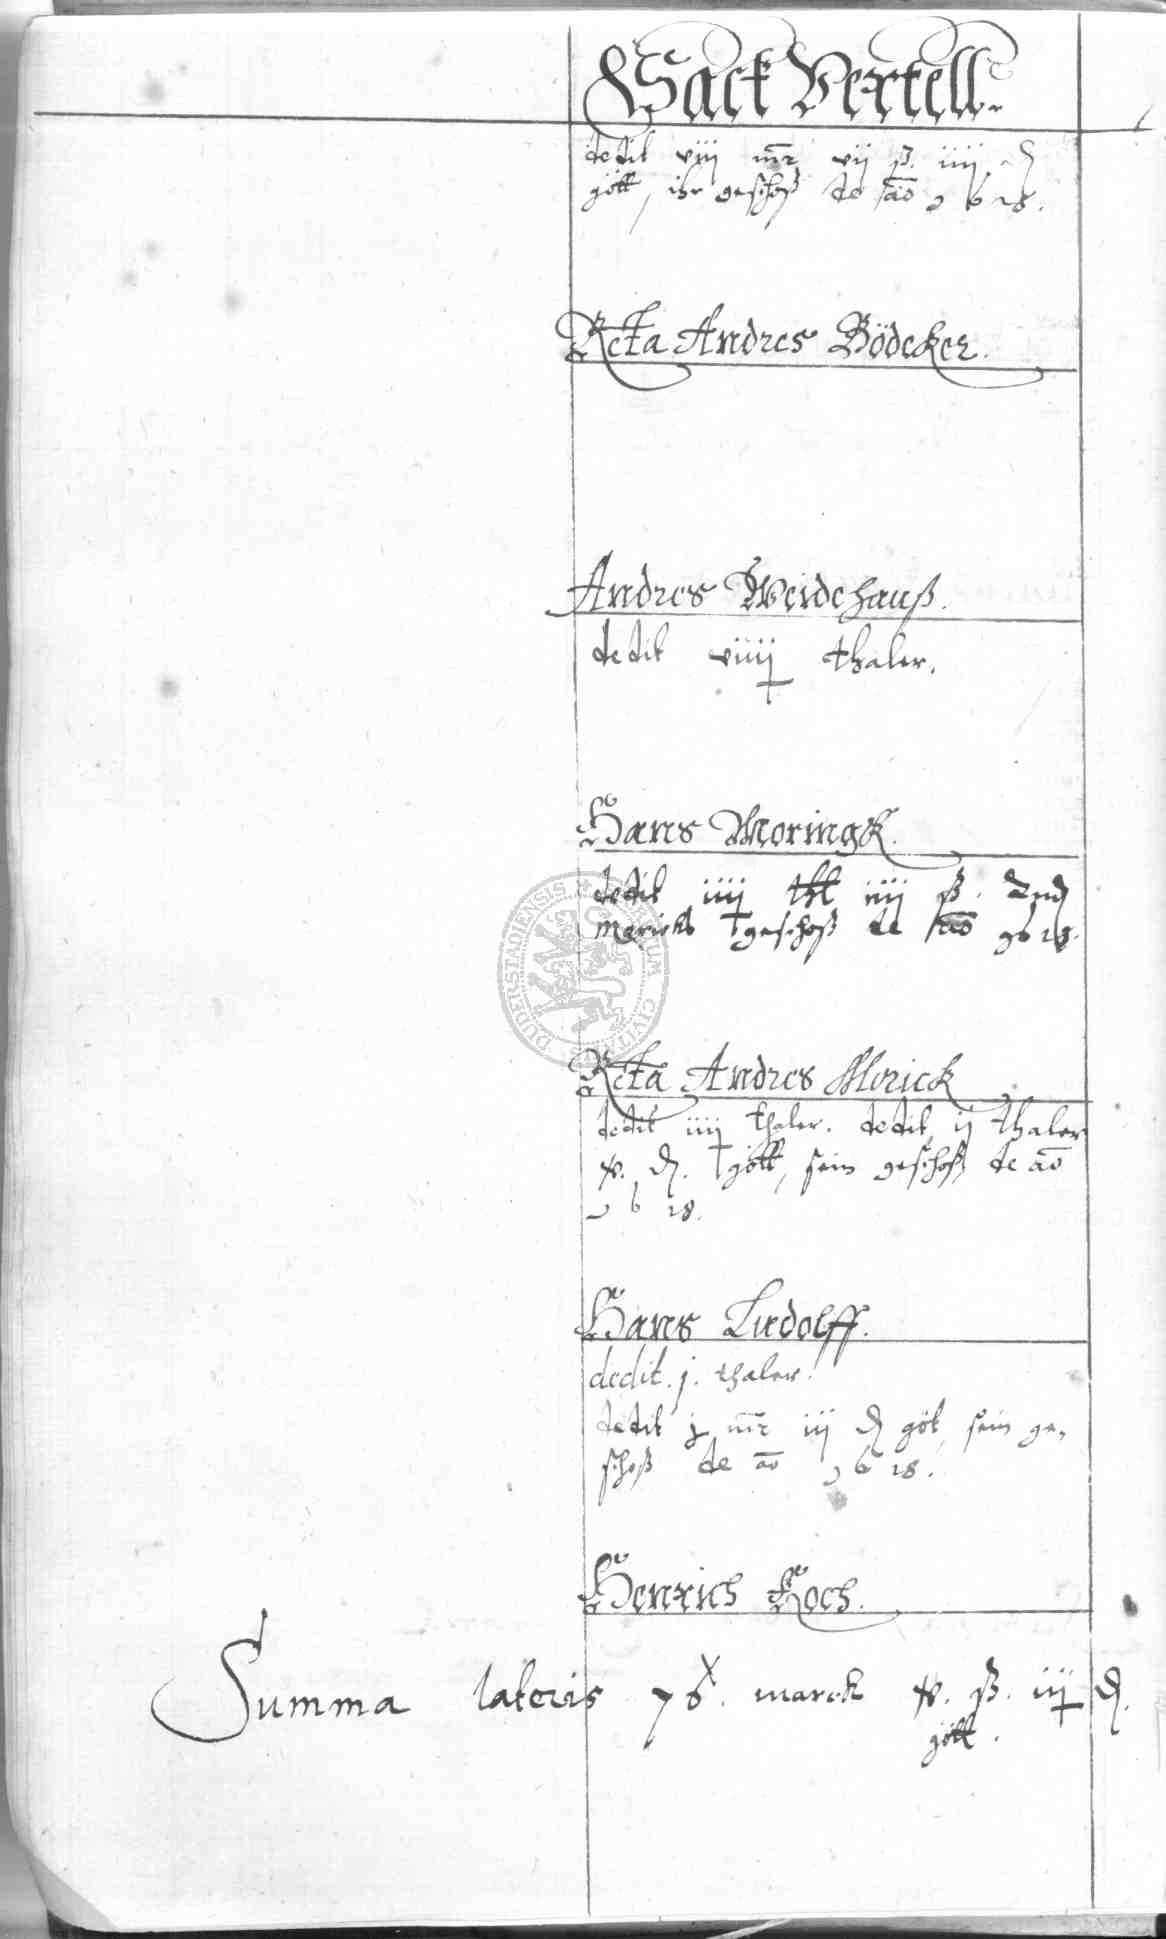 Sack Vertell.
dedit viij mr vij ß. iiij ₰
gött, ihr geschoß de ao 1618.
Reta Andres Bödeker.
Andres Weidehauß.
dedit viiij thaler.
Hans Moringk.
dedit iiij thl iiij ß.
geschoß de ao 1618.
Reta Andres Morick
dedit iiij thaler. dedit ij thaler
gött, sein geschoß de ao
1618.
Hans Ludolff.
dedit. j. thaler.
dedit j mr iij ₰ göt, sein ge-
schoß de ao 1618.
Henrich Koch.
Summa lateris marck ß. iij ₰.
gött.
DUDERSTADIENSIS CIVITATIS